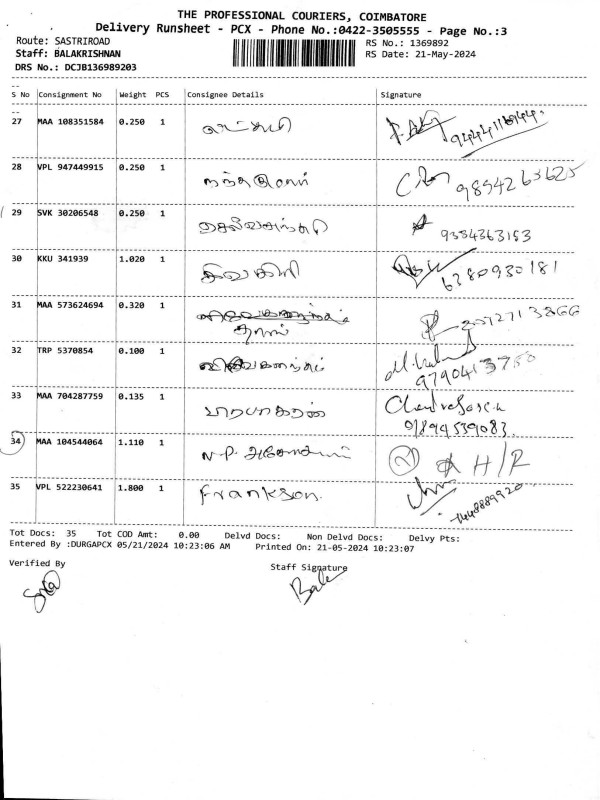 THE PROFESSIONAL COURIERS, COIMBATORE
Delivery Runsheet - PCX - Phone No.:0422-3505555 - Page No.:3
Route: SASTRIROAD
RS No.: 1369892
Staff: BALAKRISHNAN
RS Date: 21-May-2024
DRS No.: DCJB136989203
S No Consignment No Weight PCS Consignee Details Signature
27 MAA 108351584 0.250 1
28 VPL 947449915 0.250 1 நந்தகுமார்
9894265625
29 SVK 30206548 0.250 1
9384363153
30 KKU 341939 1.020 1 சிவகிரி
6380930181
31 MAA 573624694 0.320 1
32 TRP 5370854 0.100 1
9790413750
33 MAA 704287759 0.135 1 பாரபாகரன்
Chandrasen
9894539083
34 MAA 104544064 1.110 1 N.P. அசோக்
H/R
35 VPL 522230641 1.800 1 Frankson.
Tot Docs: 35 Tot COD Amt: 0.00 Delvd Docs: Non Delvd Docs: Delvy Pts:
Entered By :DURGAPCX 05/21/2024 10:23:06 AM Printed On: 21-05-2024 10:23:07
Verified By
Staff Signature
Bala